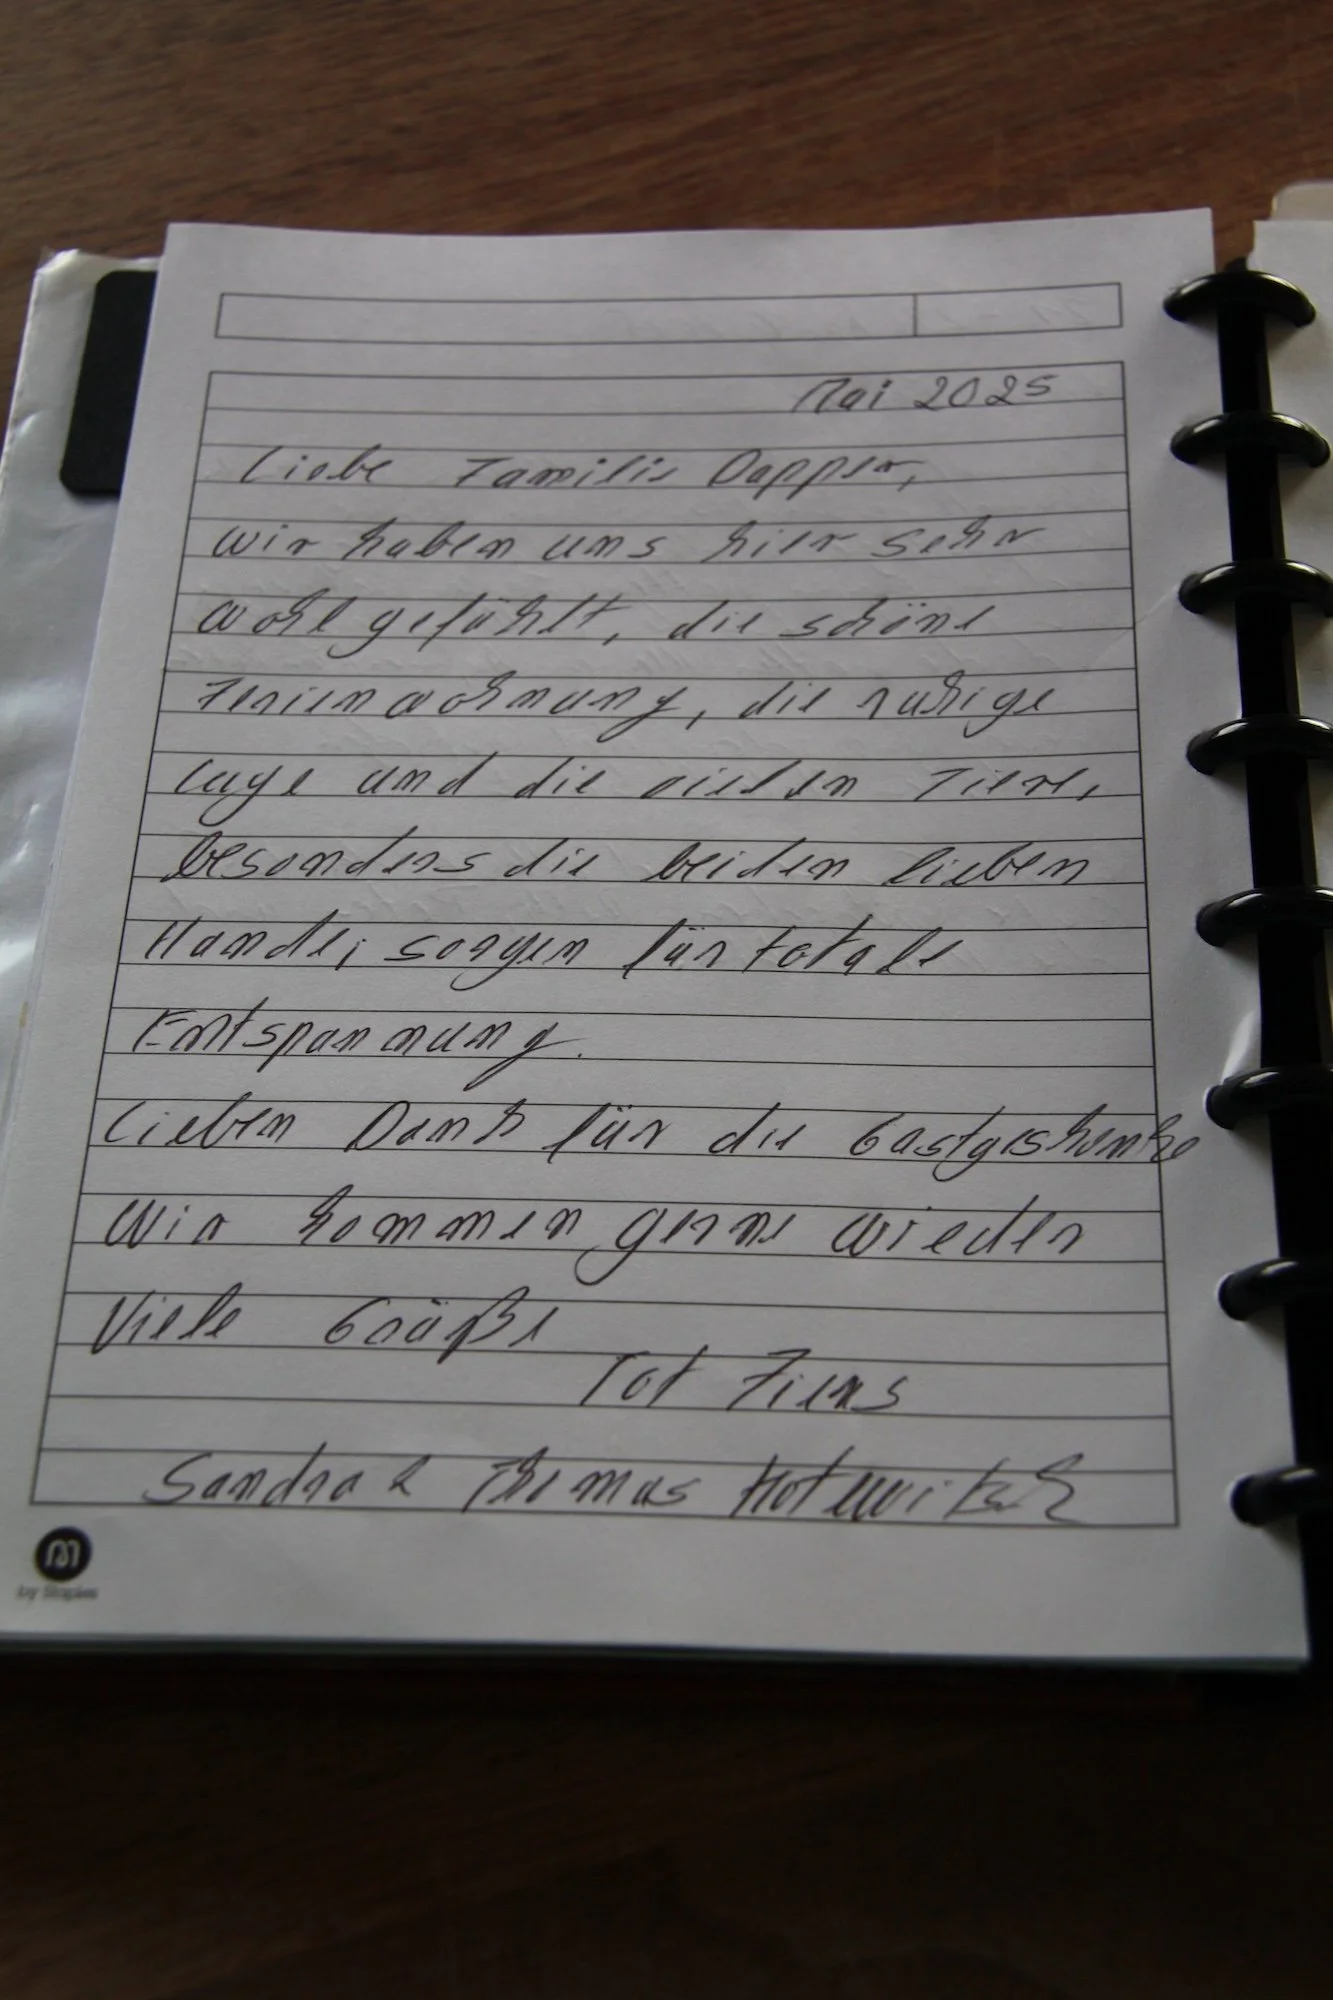 Mai 2025
Liebe Familie Dapper,
wir haben uns hier sehr
wohl gefühlt, die schöne
Ferienwohnung, die ruhige
Lage und die vielen Tiere,
besonders die beiden lieben
Hunde, sorgen für totale
Entspannung.
Lieben Dank für die Gastgeschenke
Wir kommen gerne wieder
Viele Grüße
Tot Ziens
Sandra & Thomas
by Staples